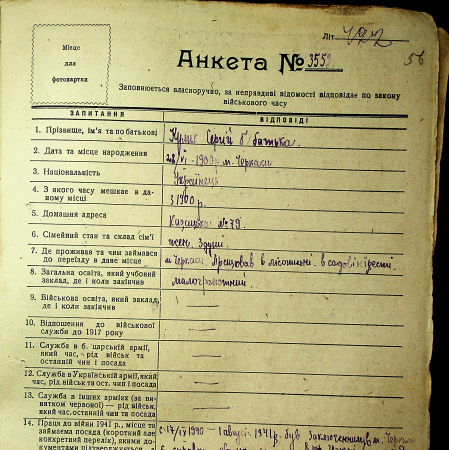 Літ
56
Місце
для
фотокартки
Анкета № 3553.
Заповнюється власноручно, за неправдиві відомості відповідає по закону
військового часу
ЗАПИТАННЯ ВІДПОВІДІ
1. Прізвище, ім'я та по батькові Сергій б/батька
2. Дата та місце народження 1900 р. м. Черкаси
3. Національність Українець
4. З якого часу мешкає в даному місці З 1900 р.
5. Домашня адреса № 79
6. Сімейний стан та склад сім'ї жон. 3 душі
7. Де проживав та чим займався
до переїзду в дане місце м. Черкаси. Працював в в садовій
8. Загальна освіта, який учбовий
заклад, де і коли закінчив малограмотний.
9. Військова освіта, який заклад,
де і коли закінчив
10. Відношення до військової
служби до 1917 року
11. Служба в б. царській армії,
який час, рід військ та
останній чин і посада
12. Служба в Українській армії, який
час, рід військ та ост. чин і посада
13. Служба в інших арміях (за ви-
нятком червоної) — рід військ,
який час, останній чин та посада
14. Праця до війни 1941 р., місце та
займаєма посада (короткий але
конкретний перелік), якими до-
кументами підтверджується
с 17/IX 1940 — 1 август 1941 р. був заключенним в м. Черкаси